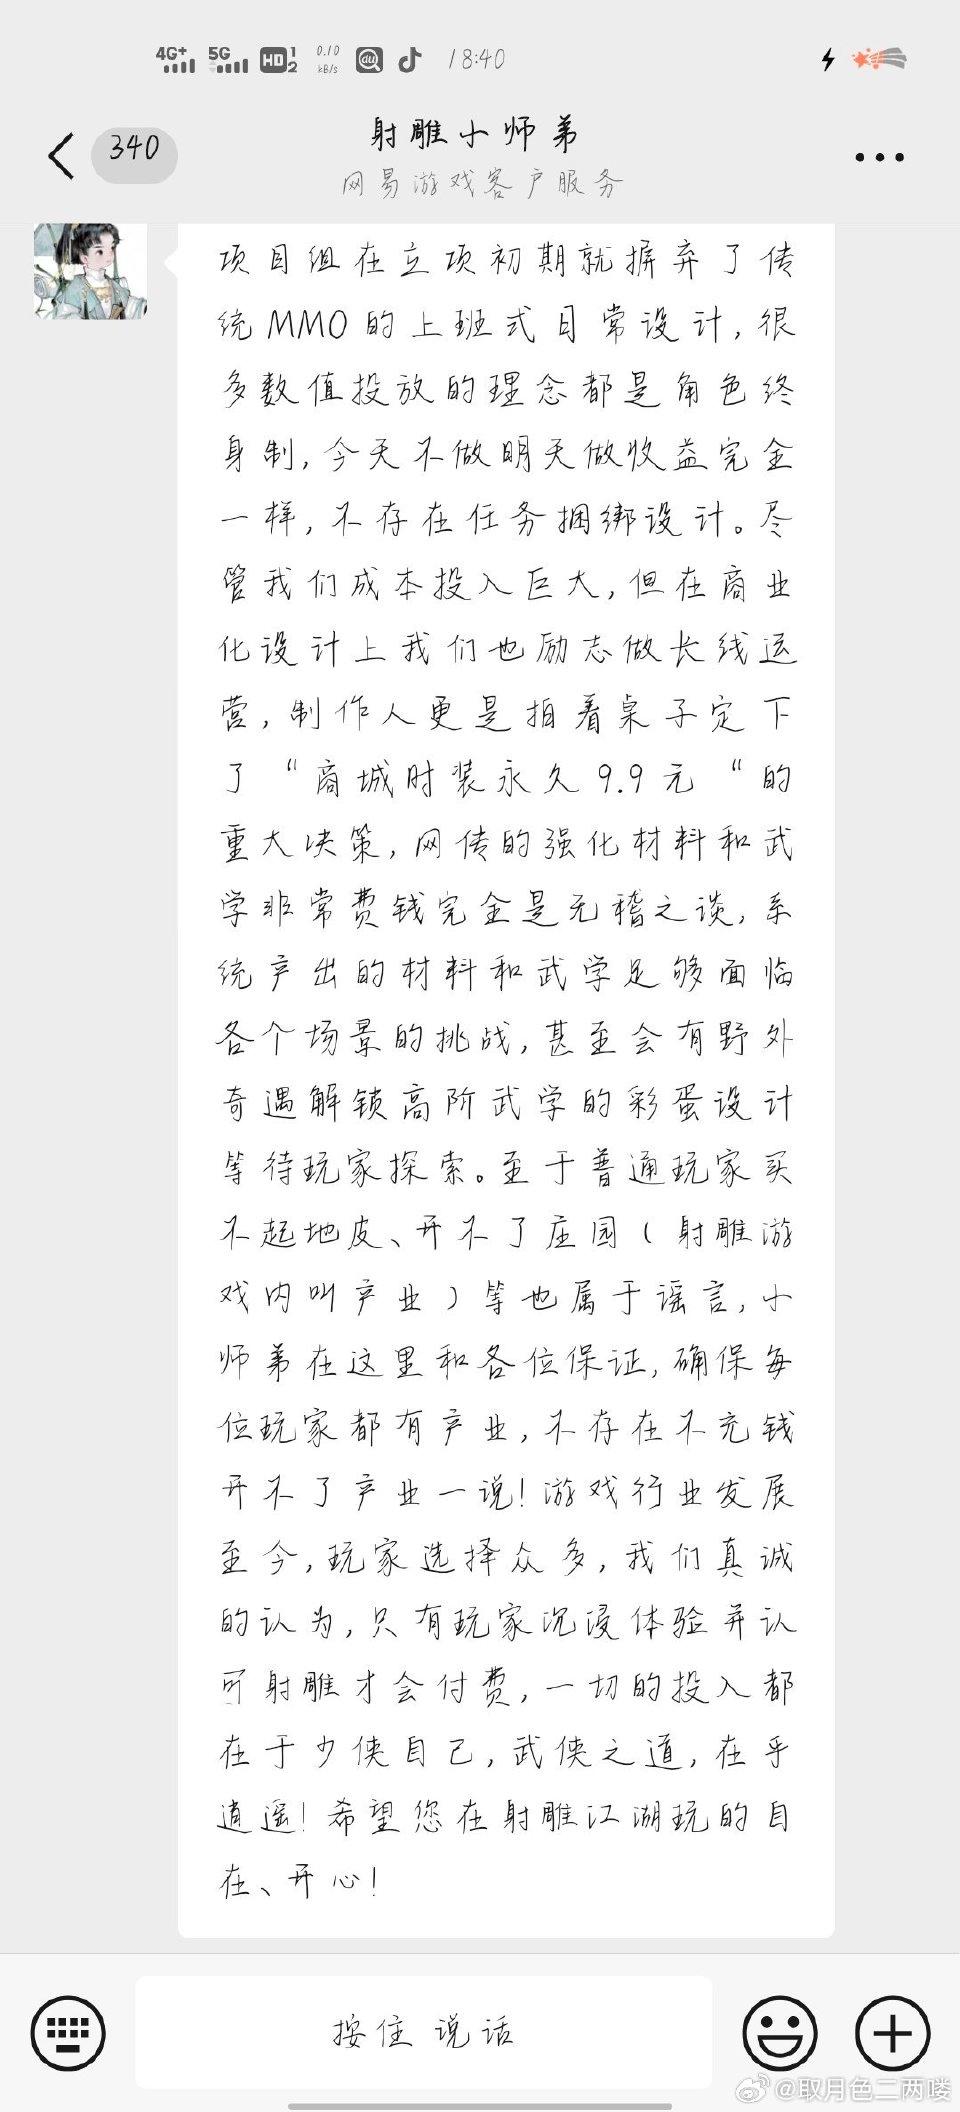 4G+ 5G HD 1 2 0.10 kB/s du 18:40
340
射雕小师弟
网易游戏客户服务
项目组在立项初期就摒弃了传
统MMO的上班式日常设计，很
多数值投放的理念都是角色终
身制，今天不做明天做收益完全
一样，不存在任务捆绑设计。尽
管我们成本投入巨大，但在商业
化设计上我们也励志做长线运
营，制作人更是拍着桌子定下
了“商城时装永久9.9元“的
重大决策，网传的强化材料和武
学非常费钱完全是无稽之谈，系
统产出的材料和武学足够面临
各个场景的挑战，甚至会有野外
奇遇解锁高阶武学的彩蛋设计
等待玩家探索。至于普通玩家买
不起地皮、开不了庄园（射雕游
戏内叫产业）等也属于谣言，小
师弟在这里和各位保证，确保每
位玩家都有产业，不存在不充钱
开不了产业一说！游戏行业发展
至今，玩家选择众多，我们真诚
的认为，只有玩家沉浸体验并认
可射雕才会付费，一切的投入都
在于少侠自己，武侠之道，在乎
逍遥！希望您在射雕江湖玩的自
在、开心！
按住 说话
@取月色二两喽